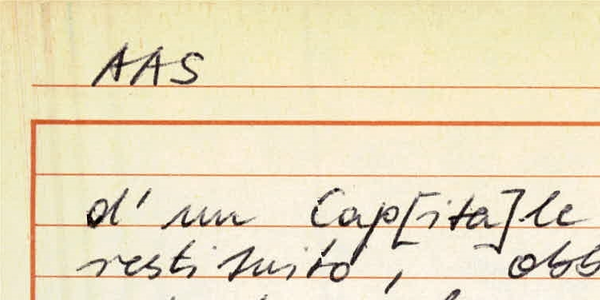 AAS
d' un Cap[ita]le
restituito, obb